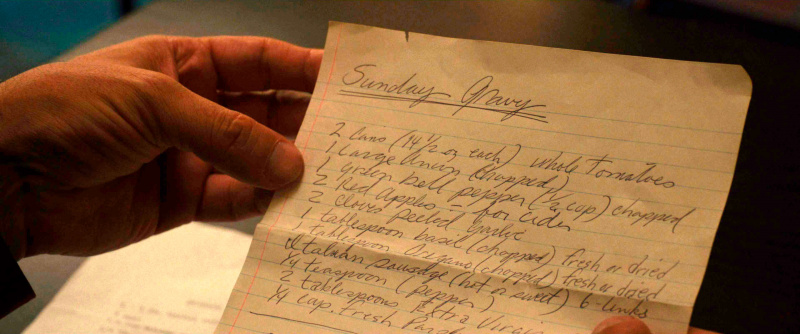 Sunday Gravy
2 cans (14 1/2 oz each) whole Tomatoes
1 Large Onion (chopped)
1 green bell pepper (1/2 cup) chopped
2 Red Apples – for cider
2 cloves peeled garlic
1 tablespoon basil (chopped) fresh or dried
1 tablespoon Oregano (chopped) fresh or dried
Italian sausage (hot or sweet) 6 links
1/4 teaspoon (pepper)
2 tablespoons Extra Virgin
1/4 cup. Fresh